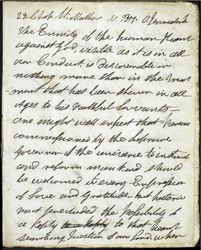 23. Chap. St. Mathew v. 37. O Jerusalem
The Enmity of the human Heart
against God visible as it is in all
our Conduct is discernable in
nothing more than in the treat
ment that has been shewn in all
Ages to his faithful Servants
one might well expect that Persons
commissioned by the
Governor of the universe to instruct
and reform mankind should
be welcomed in every Expression
of Love and Gratitude but
ment precluded the Possibility of
a Reply to that Heart
searching Question of our Lord which